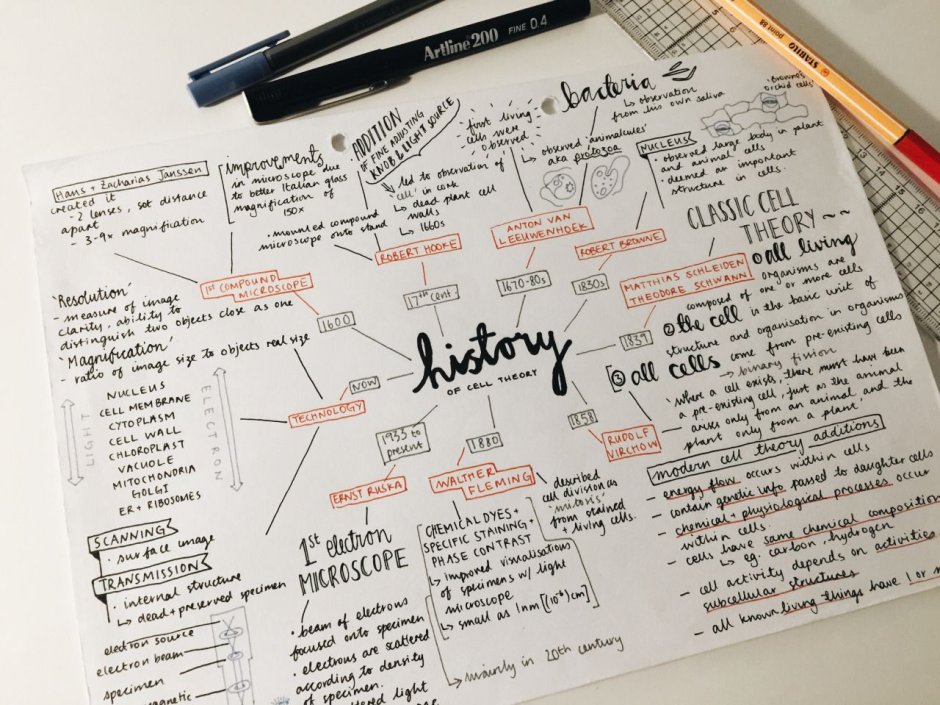 Artline 200 FINE 0.4
STABILO
point 88
Hans + Zacharias Janssen
created it
- 2 lenses, set distance
apart
- 3-9x magnification
improvements
in microscope due
to better Italian glass
magnification of
150x
. mounted compound
microscope onto stand
ADDITION
OF FINE ADJUSTING
KNOB & LIGHT SOURCE
led to observation of
'cell' in cork
↳ dead plant cell
walls
↳ 1660s
'first living
cells were
observed'
bacteria
↳ observation
from his own saliva
↳ observed 'animalcules'
aka protozoa
'Browne's
orchid cells'
NUCLEUS
• observed large body in plant
and animal cells
• deemed an important
structure in cells.
1ST COMPOUND
MICROSCOPE
1600
ROBERT HOOKE
17th cent
ANTON VAN
LEEUWENHOEK
1670-80s
ROBERT BROWNE
1830s
MATTHIAS SCHLEIDEN
THEODORE SCHWANN
1839
CLASSIC CELL
THEORY ~~
① all living
organisms are
composed of one or more cells
② the cell is the basic unit of
structure and organisation in organisms
③ all cells come from pre-existing cells
↳ binary fission
'where a cell exists, there must have been
a pre-existing cell, just as the animal
arises only from an animal and the
plant only from a plant'
history
OF CELL THEORY
'Resolution'
- measure of image
clarity, ability to
distinguish two objects close as one
'Magnification'
- ratio of image size to objects real size
LIGHT
NUCLEUS
CELL MEMBRANE
CYTOPLASM
CELL WALL
CHLOROPLAST
VACUOLE
MITOCHONDRIA
GOLGI
ER + RIBOSOMES
ELECTRON
NOW
TECHNOLOGY
1933 to
present
ERNST RUSKA
1880
WALTHER
FLEMING
1858
RUDOLF
VIRCHOW
SCANNING
• surface image
TRANSMISSION
• internal structure
↳ dead + preserved specimen
electron source
electron beam
specimen
magnetic
1st electron
MICROSCOPE
• beam of electrons
focused onto specimen
• electrons are scattered
according to density
of specimen.
light
CHEMICAL DYES +
SPECIFIC STAINING +
PHASE CONTRAST
↳ improved visualisations
of specimens w/ light
microscope
↳ small as 1nm [(10⁻⁸) cm]
↳ mainly in 20th century
described
cell division as
'mitosis'
from stained
+ living cells.
modern cell theory additions
- energy flow occurs within cells
- contain genetic info passed to daughter cells
- chemical + physiological processes occur
within cells.
- cells have same chemical composition
↳ eg. carbon, hydrogen
- cell activity depends on activities
subcellular structures
- all known living things have 1 or